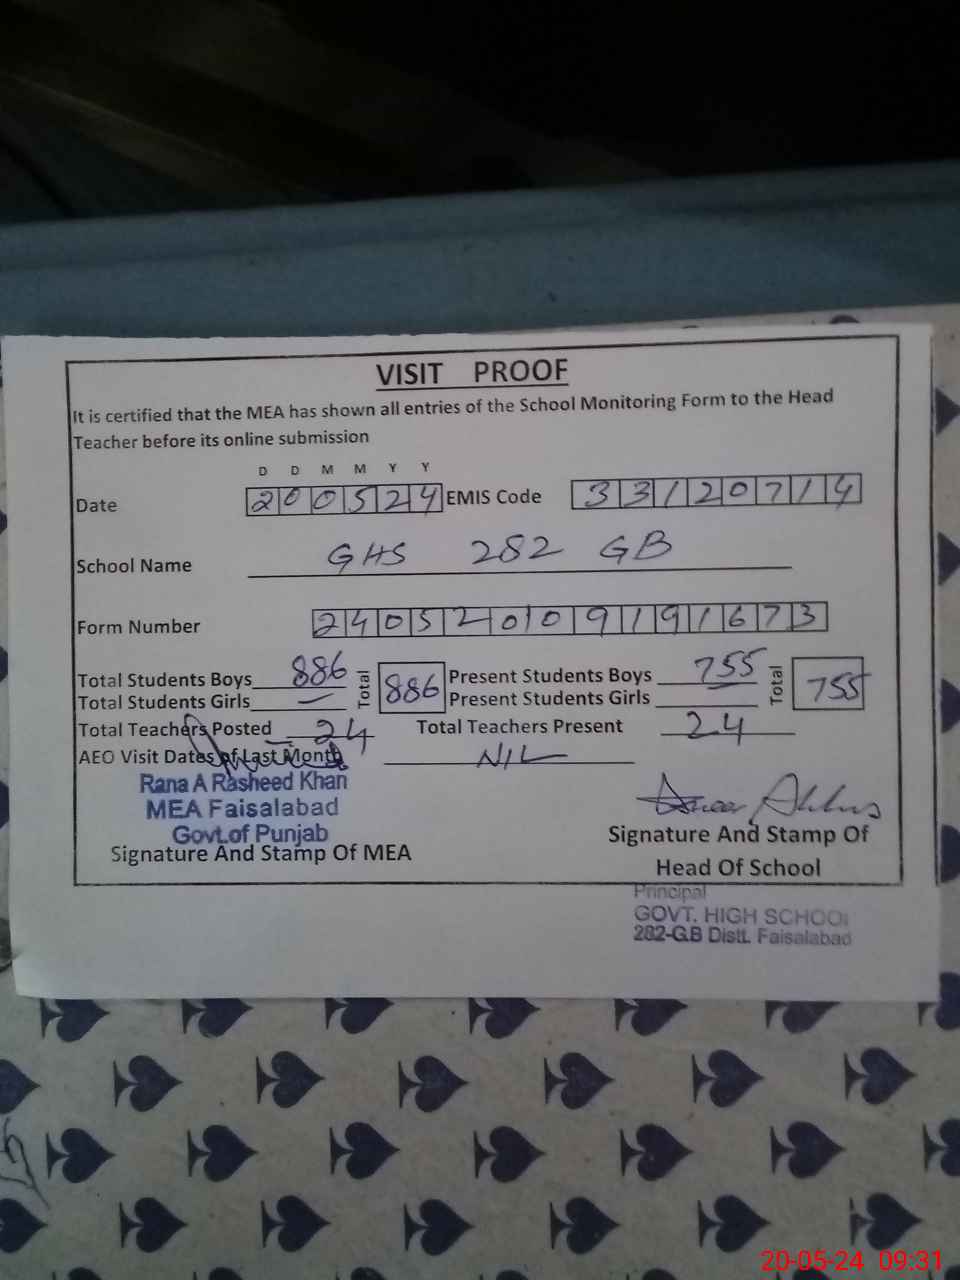 VISIT PROOF
It is certified that the MEA has shown all entries of the School Monitoring Form to the Head
Teacher before its online submission
D D M M Y Y
Date 200524 EMIS Code 33120714
School Name GHS 282 GB
Form Number 240520109191673
Total Students Boys 886 Total 886 Present Students Boys 755 Total 755
Total Students Girls — Present Students Girls
Total Teachers Posted 24 Total Teachers Present 24
AEO Visit Dates of Last Month NIL
Rana A Rasheed Khan
MEA Faisalabad
Govt.of Punjab
Signature And Stamp Of MEA
Signature And Stamp Of
Head Of School
Principal
GOVT. HIGH SCHOOL
282-G.B Distt. Faisalabad
20-05-24 09:31